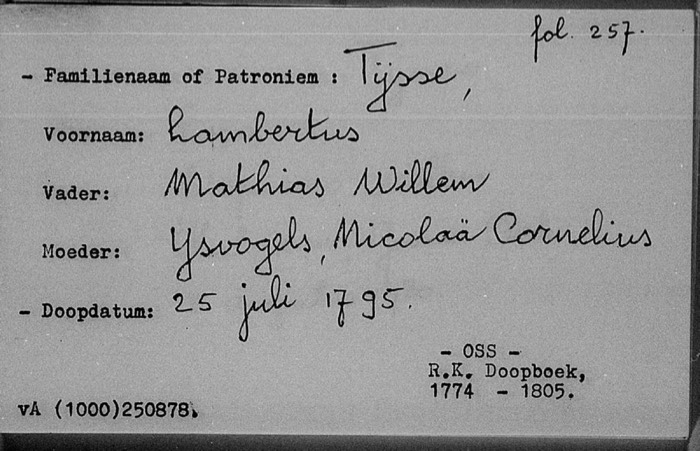 fol. 257.
- Familienaam of Patroniem : Tÿsse,
Voornaam: Lambertus
Vader: Mathias Willem
Moeder: Ysvogels, Nicolaä Cornelius
- Doopdatum: 25 juli 1795.
- OSS -
R.K. Doopboek,
1774 - 1805.
vA (1000)250878.